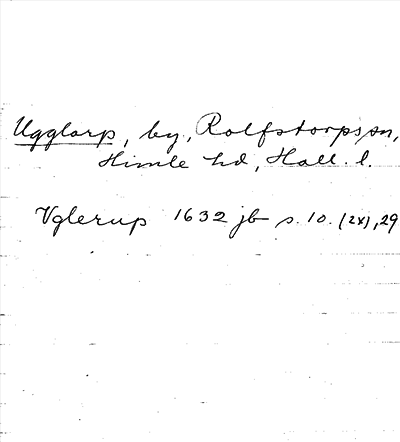 Ugglarp, by, Rolfstorps sn,
Himle hd, Hall. l.
Vglerup 1632 jb s. 10. (2x), 29